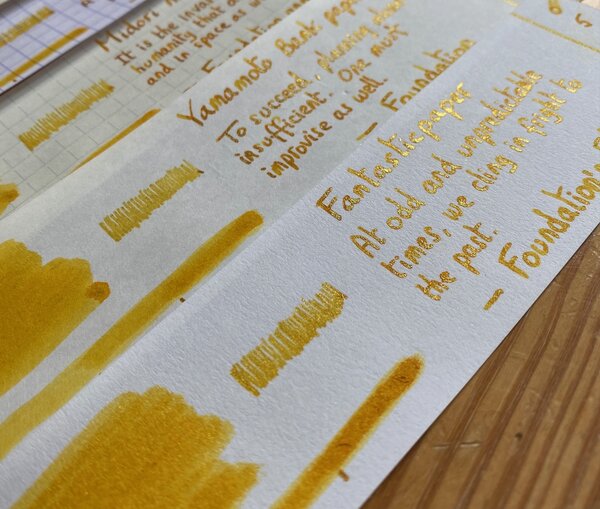 Midori
It is the inva
humanity that
and in space as w
Foundation
Yamamoto Bank paper
To succeed, planning alone
insufficient. One must
improvise as well.
— Foundation
5
Fantasticpaper
At odd and unpredictable
times, we cling in fright to
the past.
— Foundation's